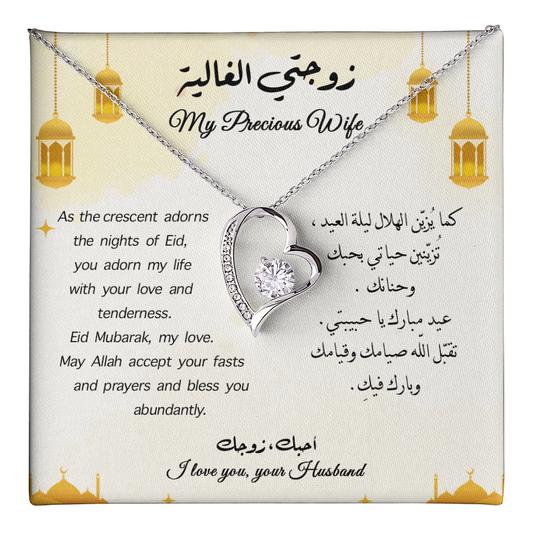 زوجتي الغالية
My Precious Wife
As the crescent adorns
the nights of Eid,
you adorn my life
with your love and
tenderness.
Eid Mubarak, my love.
May Allah accept your fasts
and prayers and bless you
abundantly.
كما يُزيّن الهلال ليلة العيد ،
تُزيّنين حياتي بحبك
وحنانك .
عيد مبارك يا حبيبتي .
تقبّل الله صيامك وقيامك
وبارك فيكِ .
احبك، زوجك
I love you, your Husband